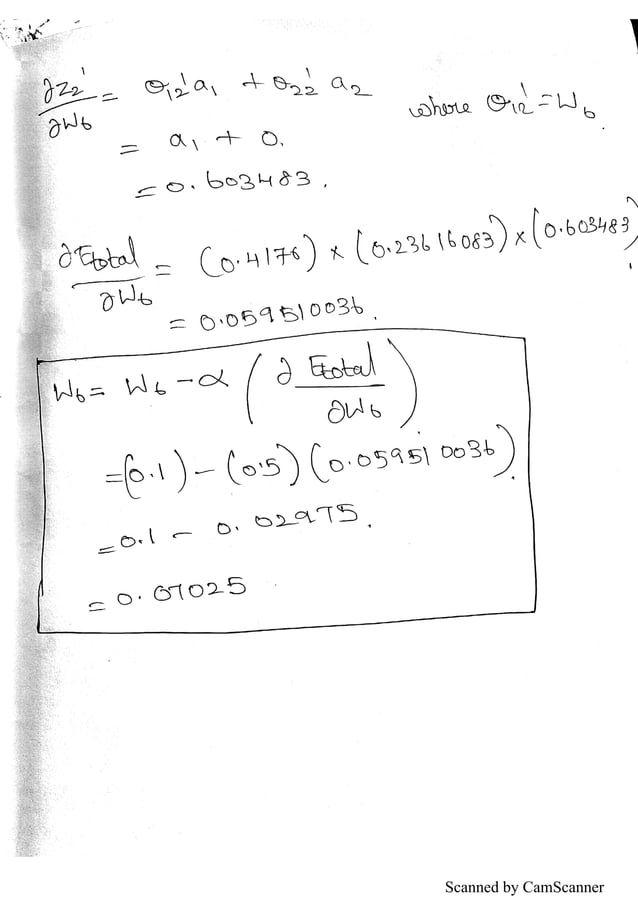 ∂Z₂¹/∂W₆ = θ₁₂¹a₁ + θ₂₂¹ a₂ where θ₁₂¹ = W₆.
= a₁ + 0.
= 0.603483.
∂Etotal/∂W₆ = (0.4176) × (0.23616083) × (0.603483)
= 0.059510036.
W₆ = W₆ - α (∂ Etotal/∂W₆)
= (0.1) - (0.5) (0.059510036).
= 0.1 - 0.02975.
= 0.07025
Scanned by CamScanner